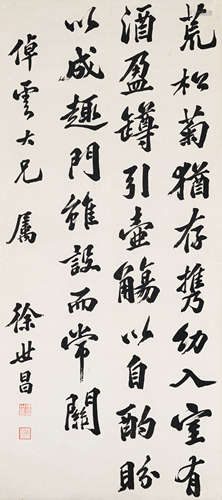 荒松菊猶存携幼入室有
酒盈罇引壺觴以自酌盼
以成趣門雖設而常關
倬雲大兄屬
徐世昌